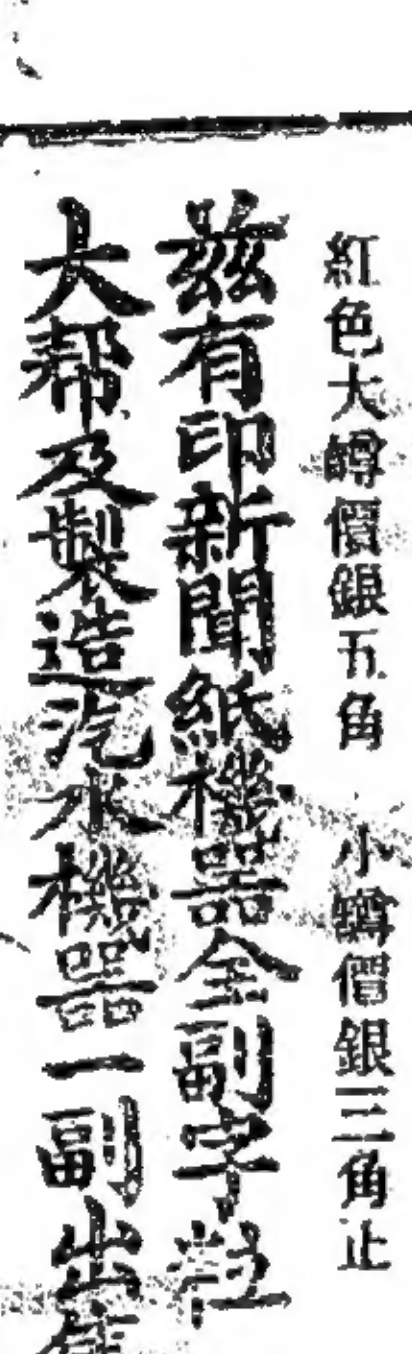 紅色大罇價銀五角 小罇價銀三角止
茲有印新聞紙機器全副字粒
大帮及製造汽水機器一副出售